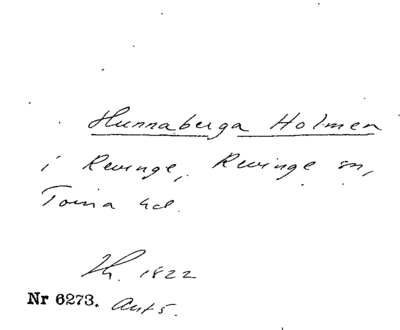 Hunnaberga Holmen
i Revinge, Revinge sn,
Torna hd.
Lh. 1822
Nr 6273. Ant 5.